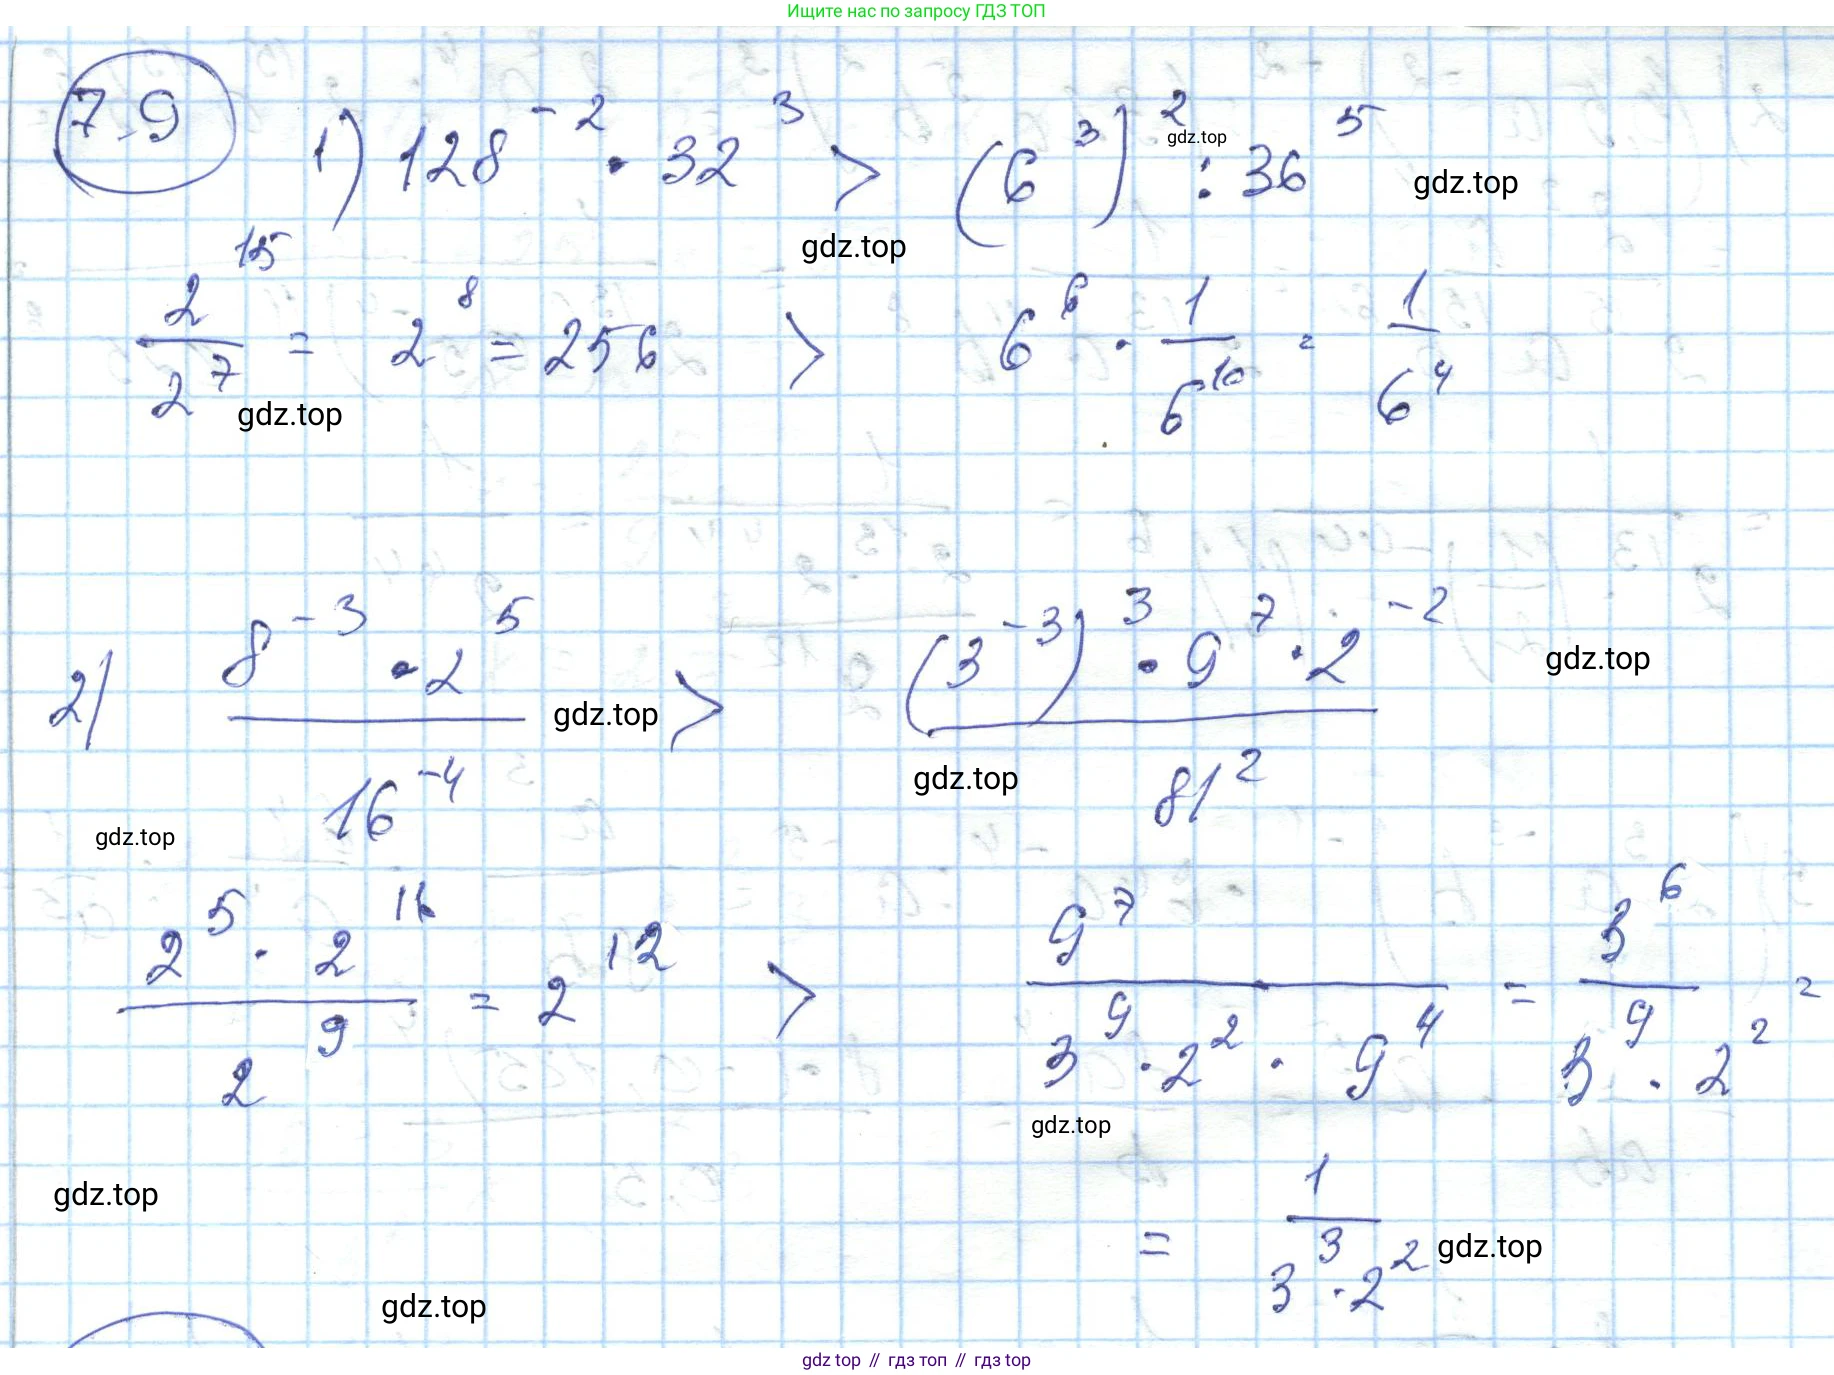 Ищите нас по запросу ГДЗ ТОП
7.9
1) 128^{-2} · 32^3 > (6^3)^2 : 36^5
gdz.top
gdz.top
gdz.top
\frac{2^{15}}{2^7} = 2^8 = 256 > 6^6 · \frac{1}{6^{10}} = \frac{1}{6^4}
gdz.top
2) \frac{8^{-3} · 2^5}{16^{-4}} > \frac{(3^{-3})^3 · 9^7 · 2^{-2}}{81^2}
gdz.top
gdz.top
gdz.top
gdz.top
\frac{2^5 · 2^{16}}{2^9} = 2^{12} > \frac{9^7}{3^9 · 2^2 · 9^4} = \frac{3^6}{3^9 · 2^2} =
gdz.top
gdz.top
= \frac{1}{3^3 · 2^2}
gdz.top
gdz.top
gdz top // гдз топ // гдз top